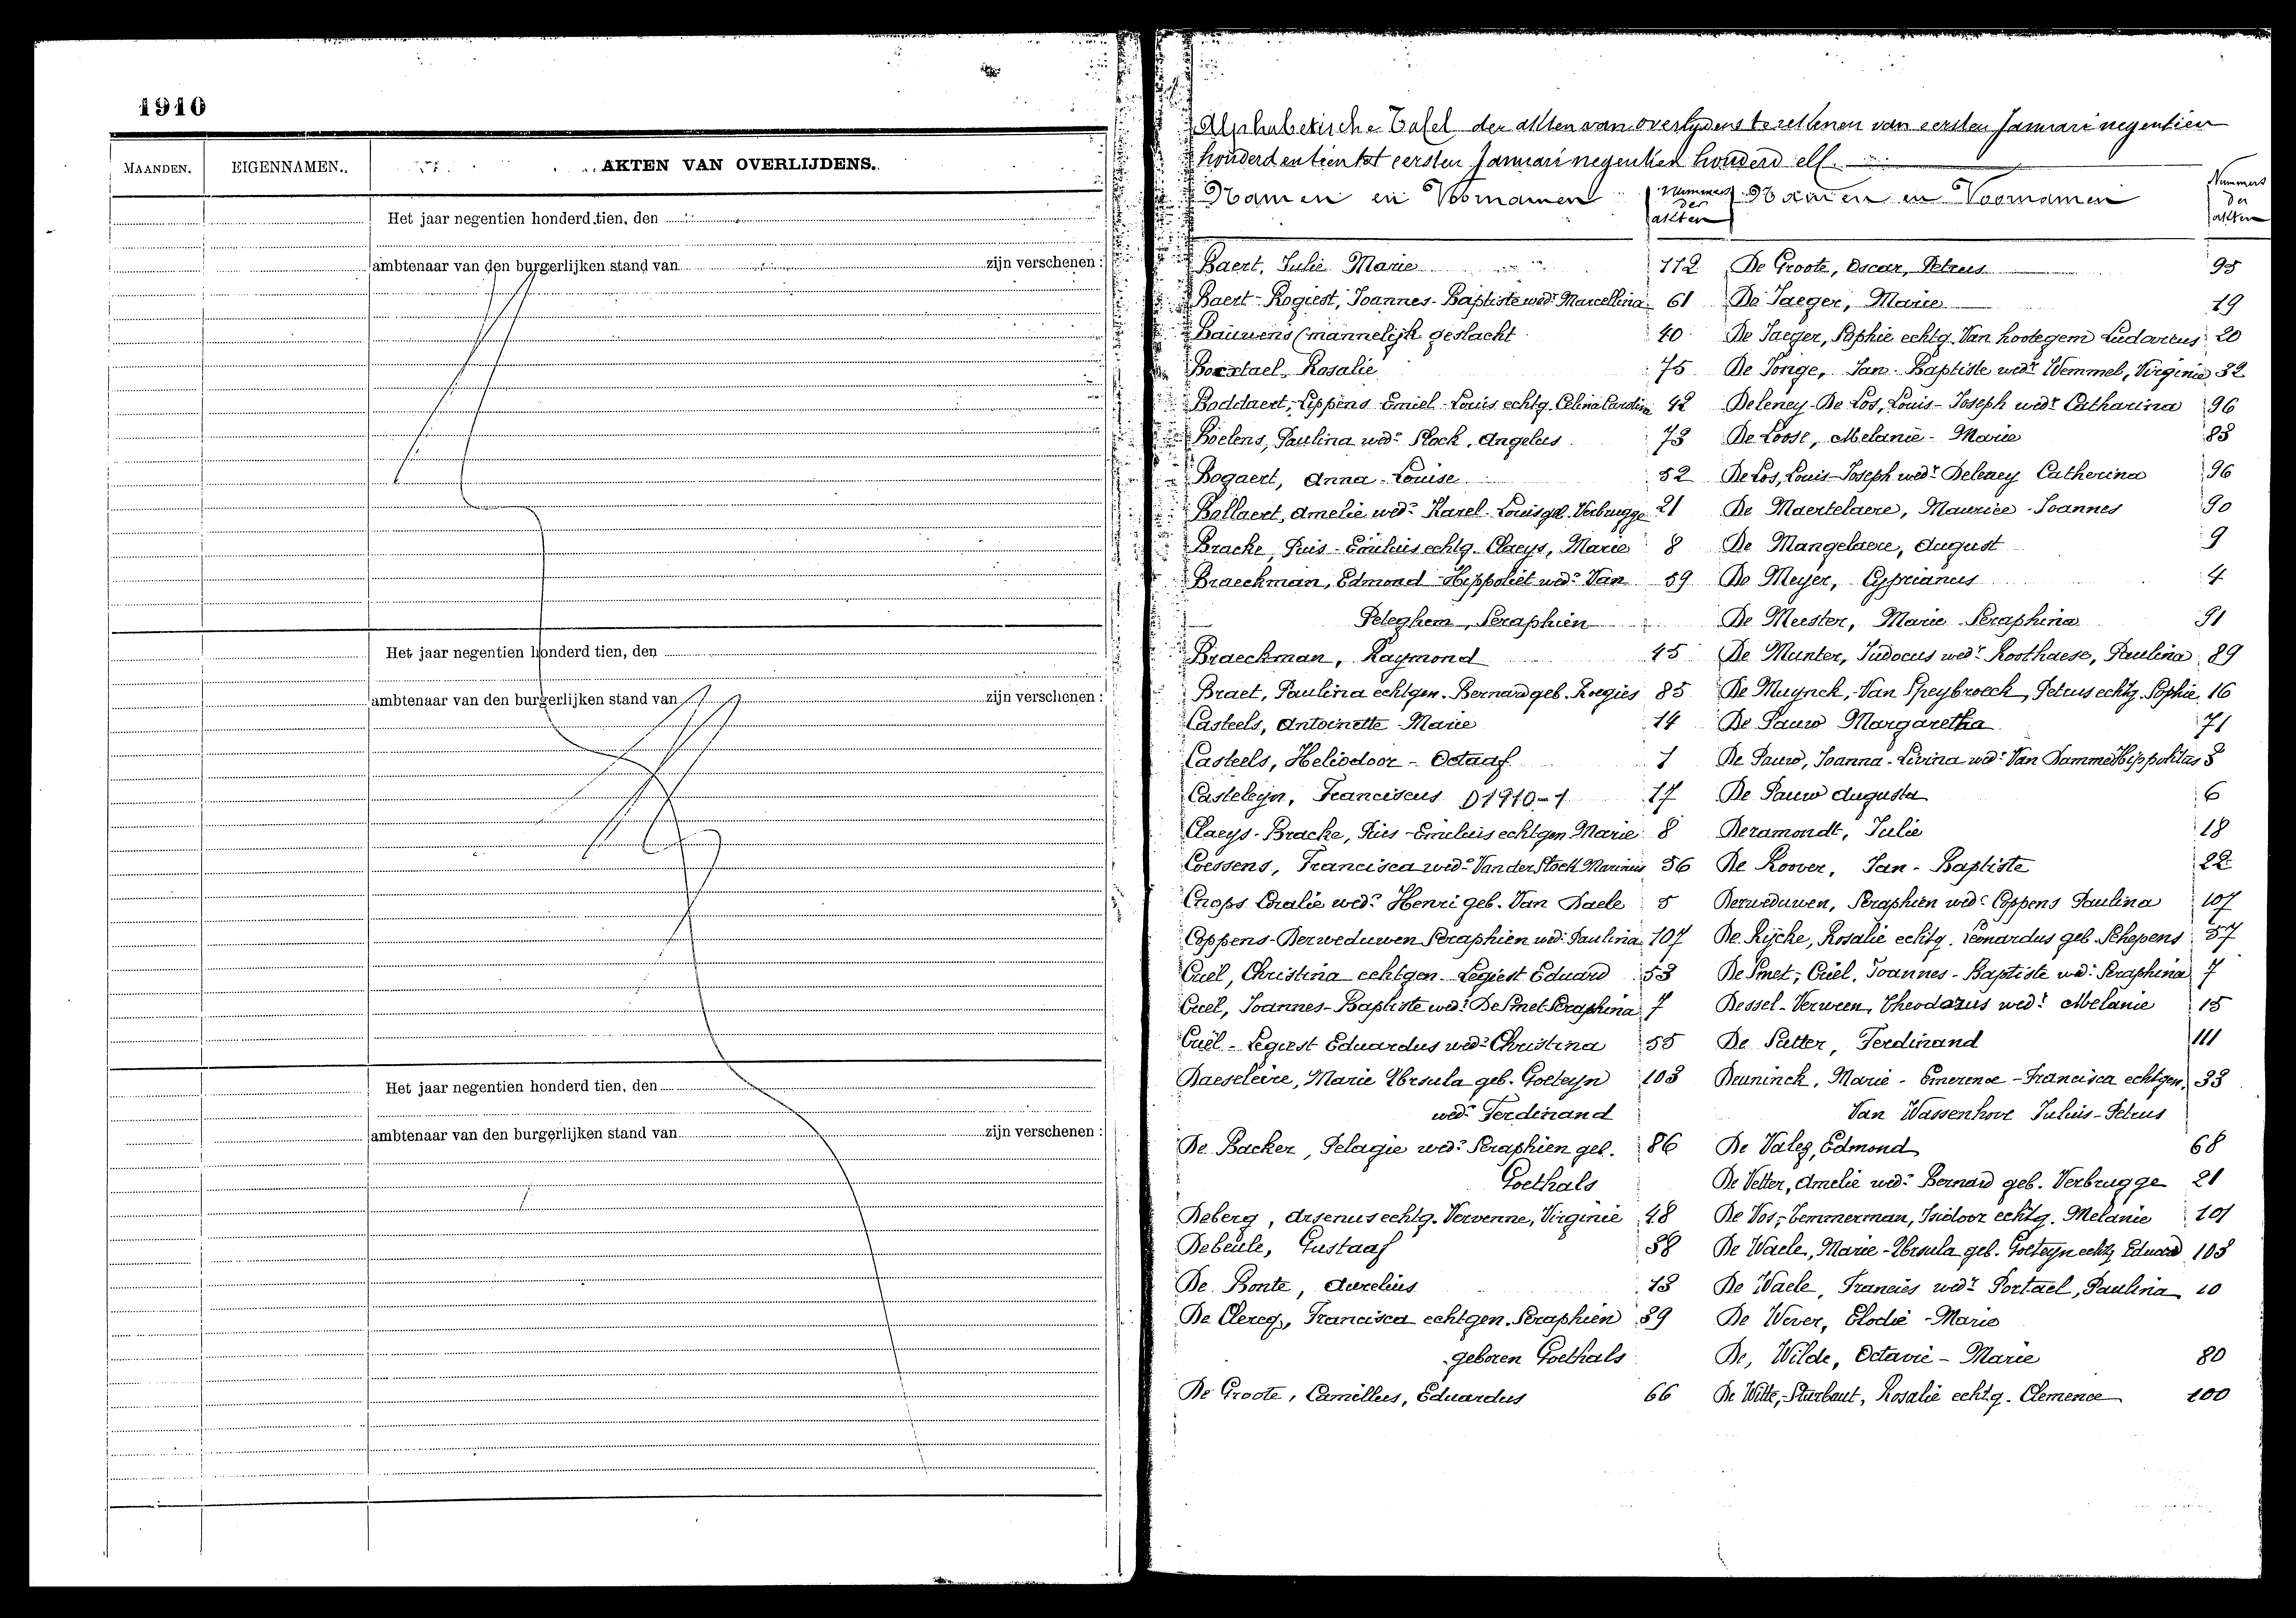 1910
MAANDEN.
EIGENNAMEN.
AKTEN VAN OVERLIJDENS.
Het jaar negentien honderd tien, den
ambtenaar van den burgerlijken stand van zijn verschenen :
Het jaar negentien honderd tien, den
ambtenaar van den burgerlijken stand van zijn verschenen :
Het jaar negentien honderd tien, den
ambtenaar van den burgerlijken stand van zijn verschenen :
Alphabetische Tafel der akten van overlydens te rekenen van eersten Januari negentien
honderd en tien tot eersten Januari negentien honderd elf.
Namen en Voornamen
Nummers der akten
Baert, Julie Marie 112
Baert-Rogiest, Joannes-Baptiste wedr Marcellina 61
Bauwens (mannelijk geslacht 40
Boxstael, Rosalie 75
Boddaert,-Lippens Emiel-Louis echtg. Celina Carolin 42
Boelens, Paulina wede Stock, Angelus 73
Bogaert, Anna-Louise 52
Bollaert, Amelie wede Karel-Louis geb. Verbrugge 21
Bracke, Pius-Emilius echtg. Claeys, Marie 8
Braeckman, Edmond Hippoliet wedr Van 59
Peteghem, Seraphien
Braeckman, Raymond 45
Braet, Paulina echtgen. Bernard geb. Roegies 85
Casteels, Antoinette Marie 14
Casteels, Heliodoor-Octaaf 1
Casteleyn, Franciscus D1910-1 17
Claeys-Bracke, Pius-Emilius echtgen Marie 8
Coessens, Francisca wede Van der Stock Marinus 56
Cnops Coralie wede Henri geb. Van Daele 5
Coppens-Derweduwen Seraphien wedr Paulina 107
Cuel, Christina echtgen. Legiest Eduard 53
Cuel, Joannes-Baptiste wedr De Smet Seraphina 7
Cuël-Legiest Eduardus wedr Christina 55
Daeseleire, Marie Ursula geb. Goeteyn 103
wede Ferdinand
De Backer, Pelagie wede Seraphien geb. 86
Goethals
Deberg, Arsenus echtg. Vervenne, Virginie 48
Debeule, Gustaaf 38
De Bonte, Aurelius 13
De Clercq, Francisca echtgen. Seraphien 39
geboren Goethals
De Groote, Camillus, Eduardus 66
Namen en Voornamen
Nummers der akten
De Groote, Oscar, Petrus 95
De Jaeger, Marie 19
De Jaeger, Sophie echtg. Van hootegem Ludovicus 20
De Jonge, Jan-Baptiste wedr Wemmel, Virginie 32
Deleney-De Los, Louis-Joseph wedr Catharina 96
De Loose, Melanie-Marie 83
De Los, Louis-Joseph wedr Deleney Catherina 96
De Maertelaere, Maurice-Joannes 90
De Mangelaere, August 9
De Meyer, Cyprianus 4
De Meester, Marie Seraphina 91
De Munter, Judocus wedr Roothaese, Paulina 89
De Muynck,-Van Speybroeck, Petrus echtg. Sophie 16
De Pauw Margaretha 71
De Pauw, Joanna-Livina wede Van Damme Hippolitus 3
De Pauw Augusta 6
Deramondt, Julie 18
De Roover, Jan-Baptiste 22
Derweduwen, Seraphien wedr Coppens Paulina 107
De Rijcke, Rosalie echtg. Leonardus geb. Schepens 37
De Smet,-Cuel, Joannes-Baptiste wedr Seraphina 7
Dessel-Verween, Theodorus wedr Melanie 15
De Sutter, Ferdinand 111
Deuninck, Marie-Emerence-Francisca echtgen. 33
Van Wassenhove Julius-Petrus
De Valez, Edmond 68
De Vetter, Amelie wede Bernard geb. Verbrugge 21
De Vos,-Temmerman, Isidoor echtg. Melanie 101
De Waele, Marie-Ursula geb. Goeteyn echtg Eduard 103
De Waele, Francies wedr Portael, Paulina 10
De Wever, Elodie-Marie
De, Wilde, Octavie-Marie 80
De Witte,-Sturbaut, Rosalie echtg. Clemence 100